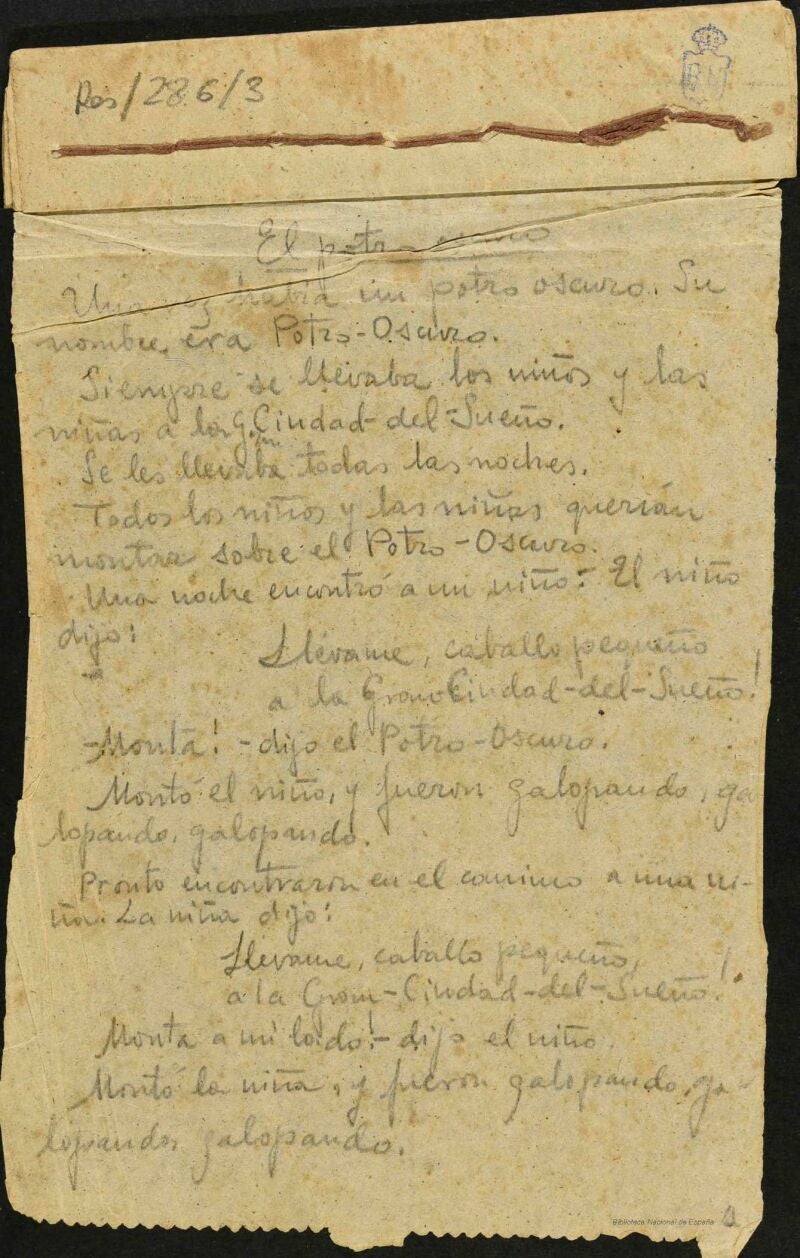 Res/286/3
BN
El potro oscuro
Una vez había un potro oscuro. Su
nombre era Potro-Oscuro.
Siempre se llevaba los niños y las
niñas a la Gran Ciudad-del-Sueño.
Se les llevaba todas las noches.
Todos los niños y las niñas querían
montar sobre el Potro-Oscuro.
Una noche encontró a un niño. El niño
dijo:
Llévame, caballo pequeño
a la Gran Ciudad-del-Sueño!
-Monta! -dijo el Potro-Oscuro.
Montó el niño, y fueron galopando, ga
lopando, galopando.
Pronto encontraron en el camino a una ni-
ña. La niña dijo:
Llevame, caballo pequeño,
a la Gran-Ciudad-del-Sueño!
Monta a mi lado! - dijo el niño.
Montó la niña, y fueron galopando, ga-
lopando, galopando.
Biblioteca Nacional de España